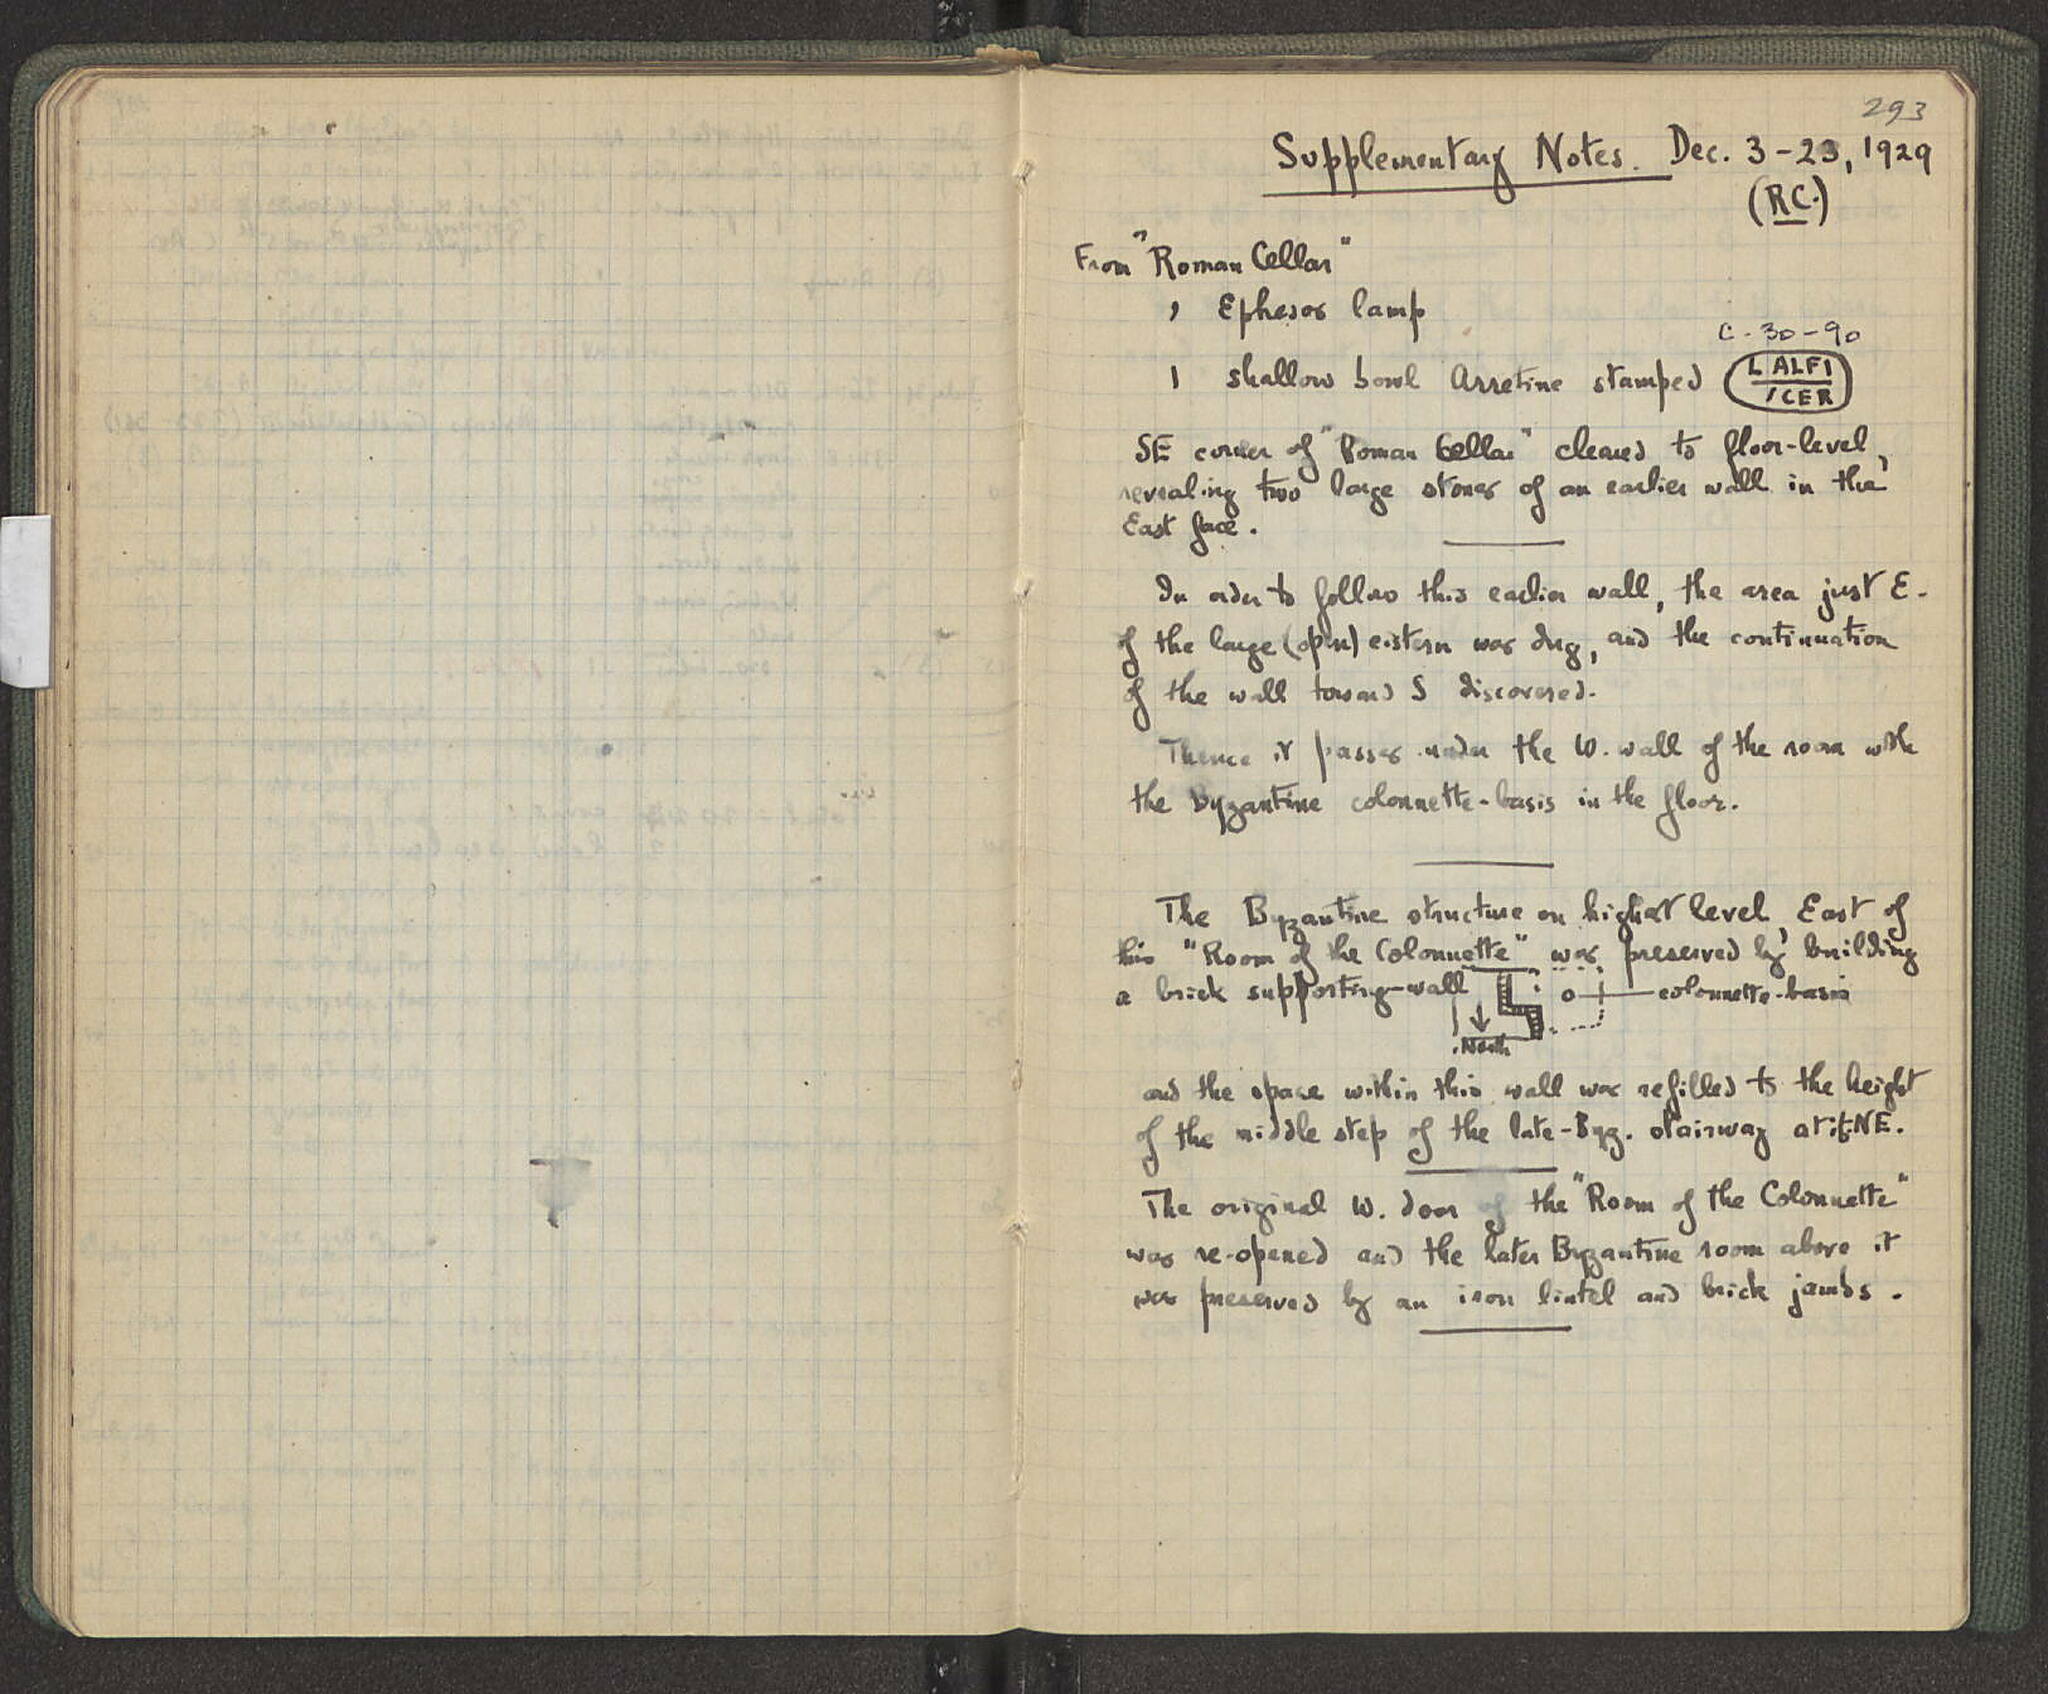 293
Supplementary Notes. Dec. 3-23, 1929
(RC.)
From "Roman Cellar"
1 Ephesos lamp
C-30-90
1 shallow bowl Arretine stamped L ALFI
/CER
SE corner of "Roman Cellar" cleared to floor-level,
revealing two large stones of an earlier wall in the
East face.
In order to follow this earlier wall, the area just E.
of the large (open) cistern was dug, and the continuation
of the wall toward S discovered.
Thence it passes under the W. wall of the room with
the Byzantine colonnette-basis in the floor.
The Byzantine structure on highest level, East of
this "Room of the Colonnette" was preserved by building
a brick supporting-wall colonnette-basis
North
and the space within this wall was refilled to the height
of the middle step of the late-Byz. stairway at NE.
The original W. door of the "Room of the Colonnette"
was re-opened and the later Byzantine room above it
was preserved by an iron lintel and brick jambs.